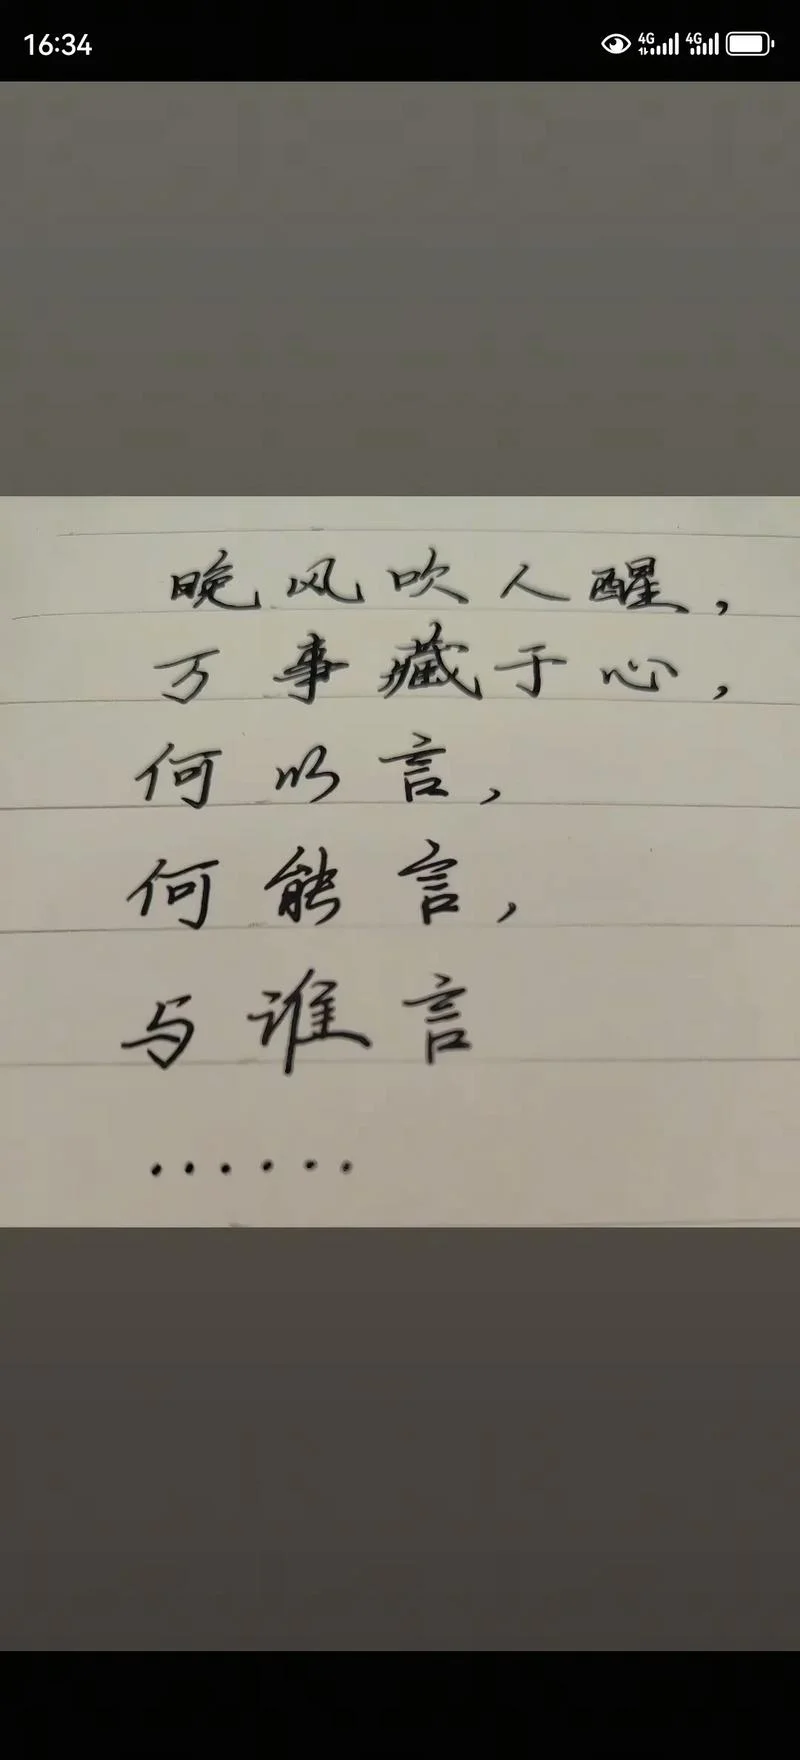 16:34
4G 4G
晚风吹人醒，
万事藏于心，
何以言，
何能言，
与谁言
......